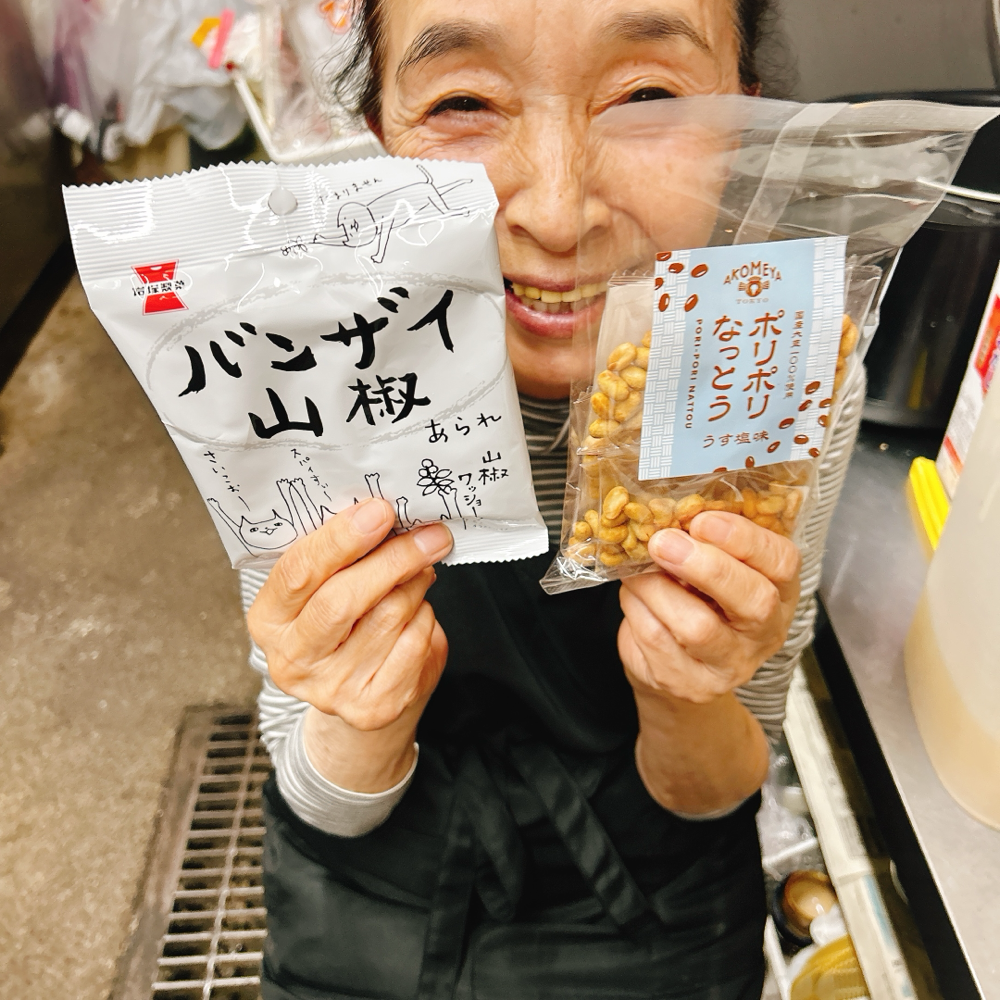 たまりません
岩塚製菓
バンザイ
山椒
あられ
さいこぉー
スパイすぃ〜
山椒
ワッショーイ
AKOMEYA
TOKYO
国産大豆100%使用
ポリポリ
なっとう
PORI-PORI NATTOU
うす塩味